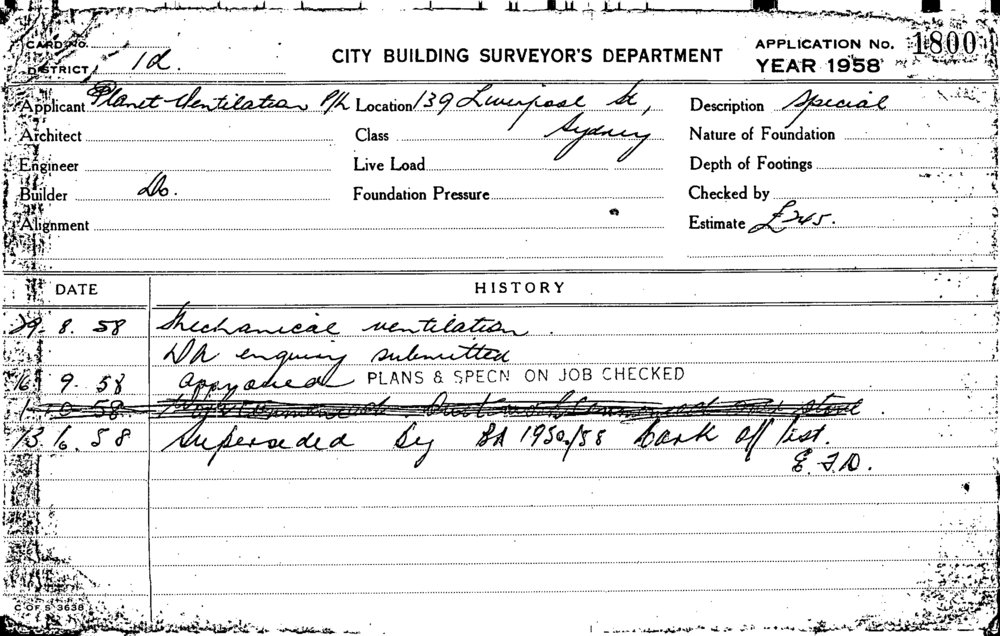 CARD No.
DISTRICT 1d.
CITY BUILDING SURVEYOR'S DEPARTMENT
APPLICATION No. 1800
YEAR 1958
Applicant Planet Ventilation P/L Location 139 Liverpool St, Description Special
Architect Class Sydney Nature of Foundation
Engineer Live Load Depth of Footings
Builder Do. Foundation Pressure Checked by
Alignment Estimate £245.
DATE HISTORY
29. 8. 58 Mechanical ventilation
DA enquiry submitted
16. 9. 58 approved PLANS & SPECN ON JOB CHECKED
58
58 Superseded by BA 1950/58 Cark off list.
E.F.D.
C OF S 3638